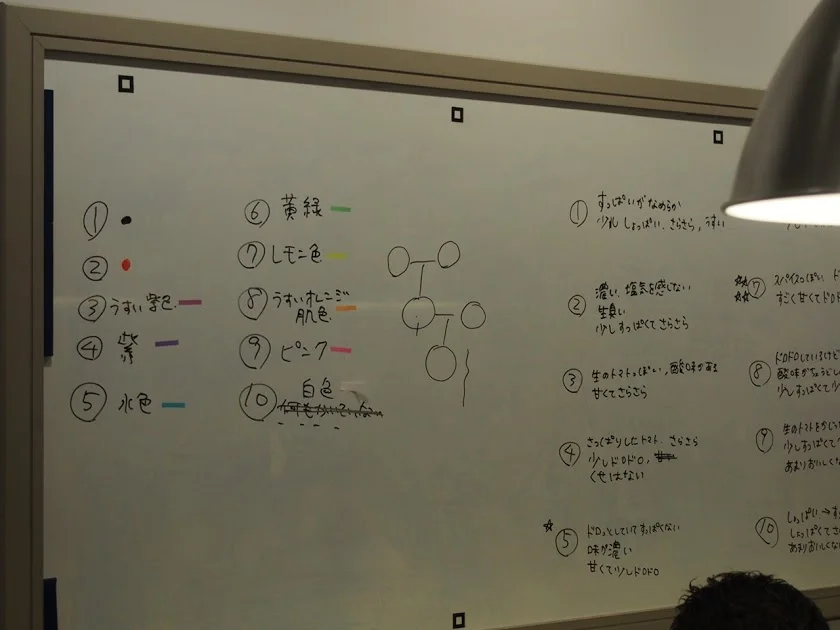 ①
②
③ うすい紫色
④ 紫
⑤ 水色
⑥ 黄緑
⑦ レモン色
⑧ うすいオレンジ
肌色
⑨ ピンク
⑩ 白色
① すっぱいがなめらか
少ししょっぱい、さらさら、うすい
② 濃い、塩気を感じない
生臭い
少しすっぱくてさらさら
③ 生のトマトっぽい、酸味がある
甘くてさらさら
④ さっぱりしたトマト、さらさら
少しドロドロ,
くせはない
☆ ⑤ ドロっとしていてすっぱくない
味が濃い
甘くて少しドロドロ
⑦ スパイスっぽい、ド
すごく甘くてドロド
⑧ ドロドロしているけど
酸味がちょうどい
少しすっぱくて少
⑨ 生のトマトをかじっ
少しすっぱくて
あまりおいしくな
⑩ しょっぱい→す
しょっぱくてさ
あまりおいしくな